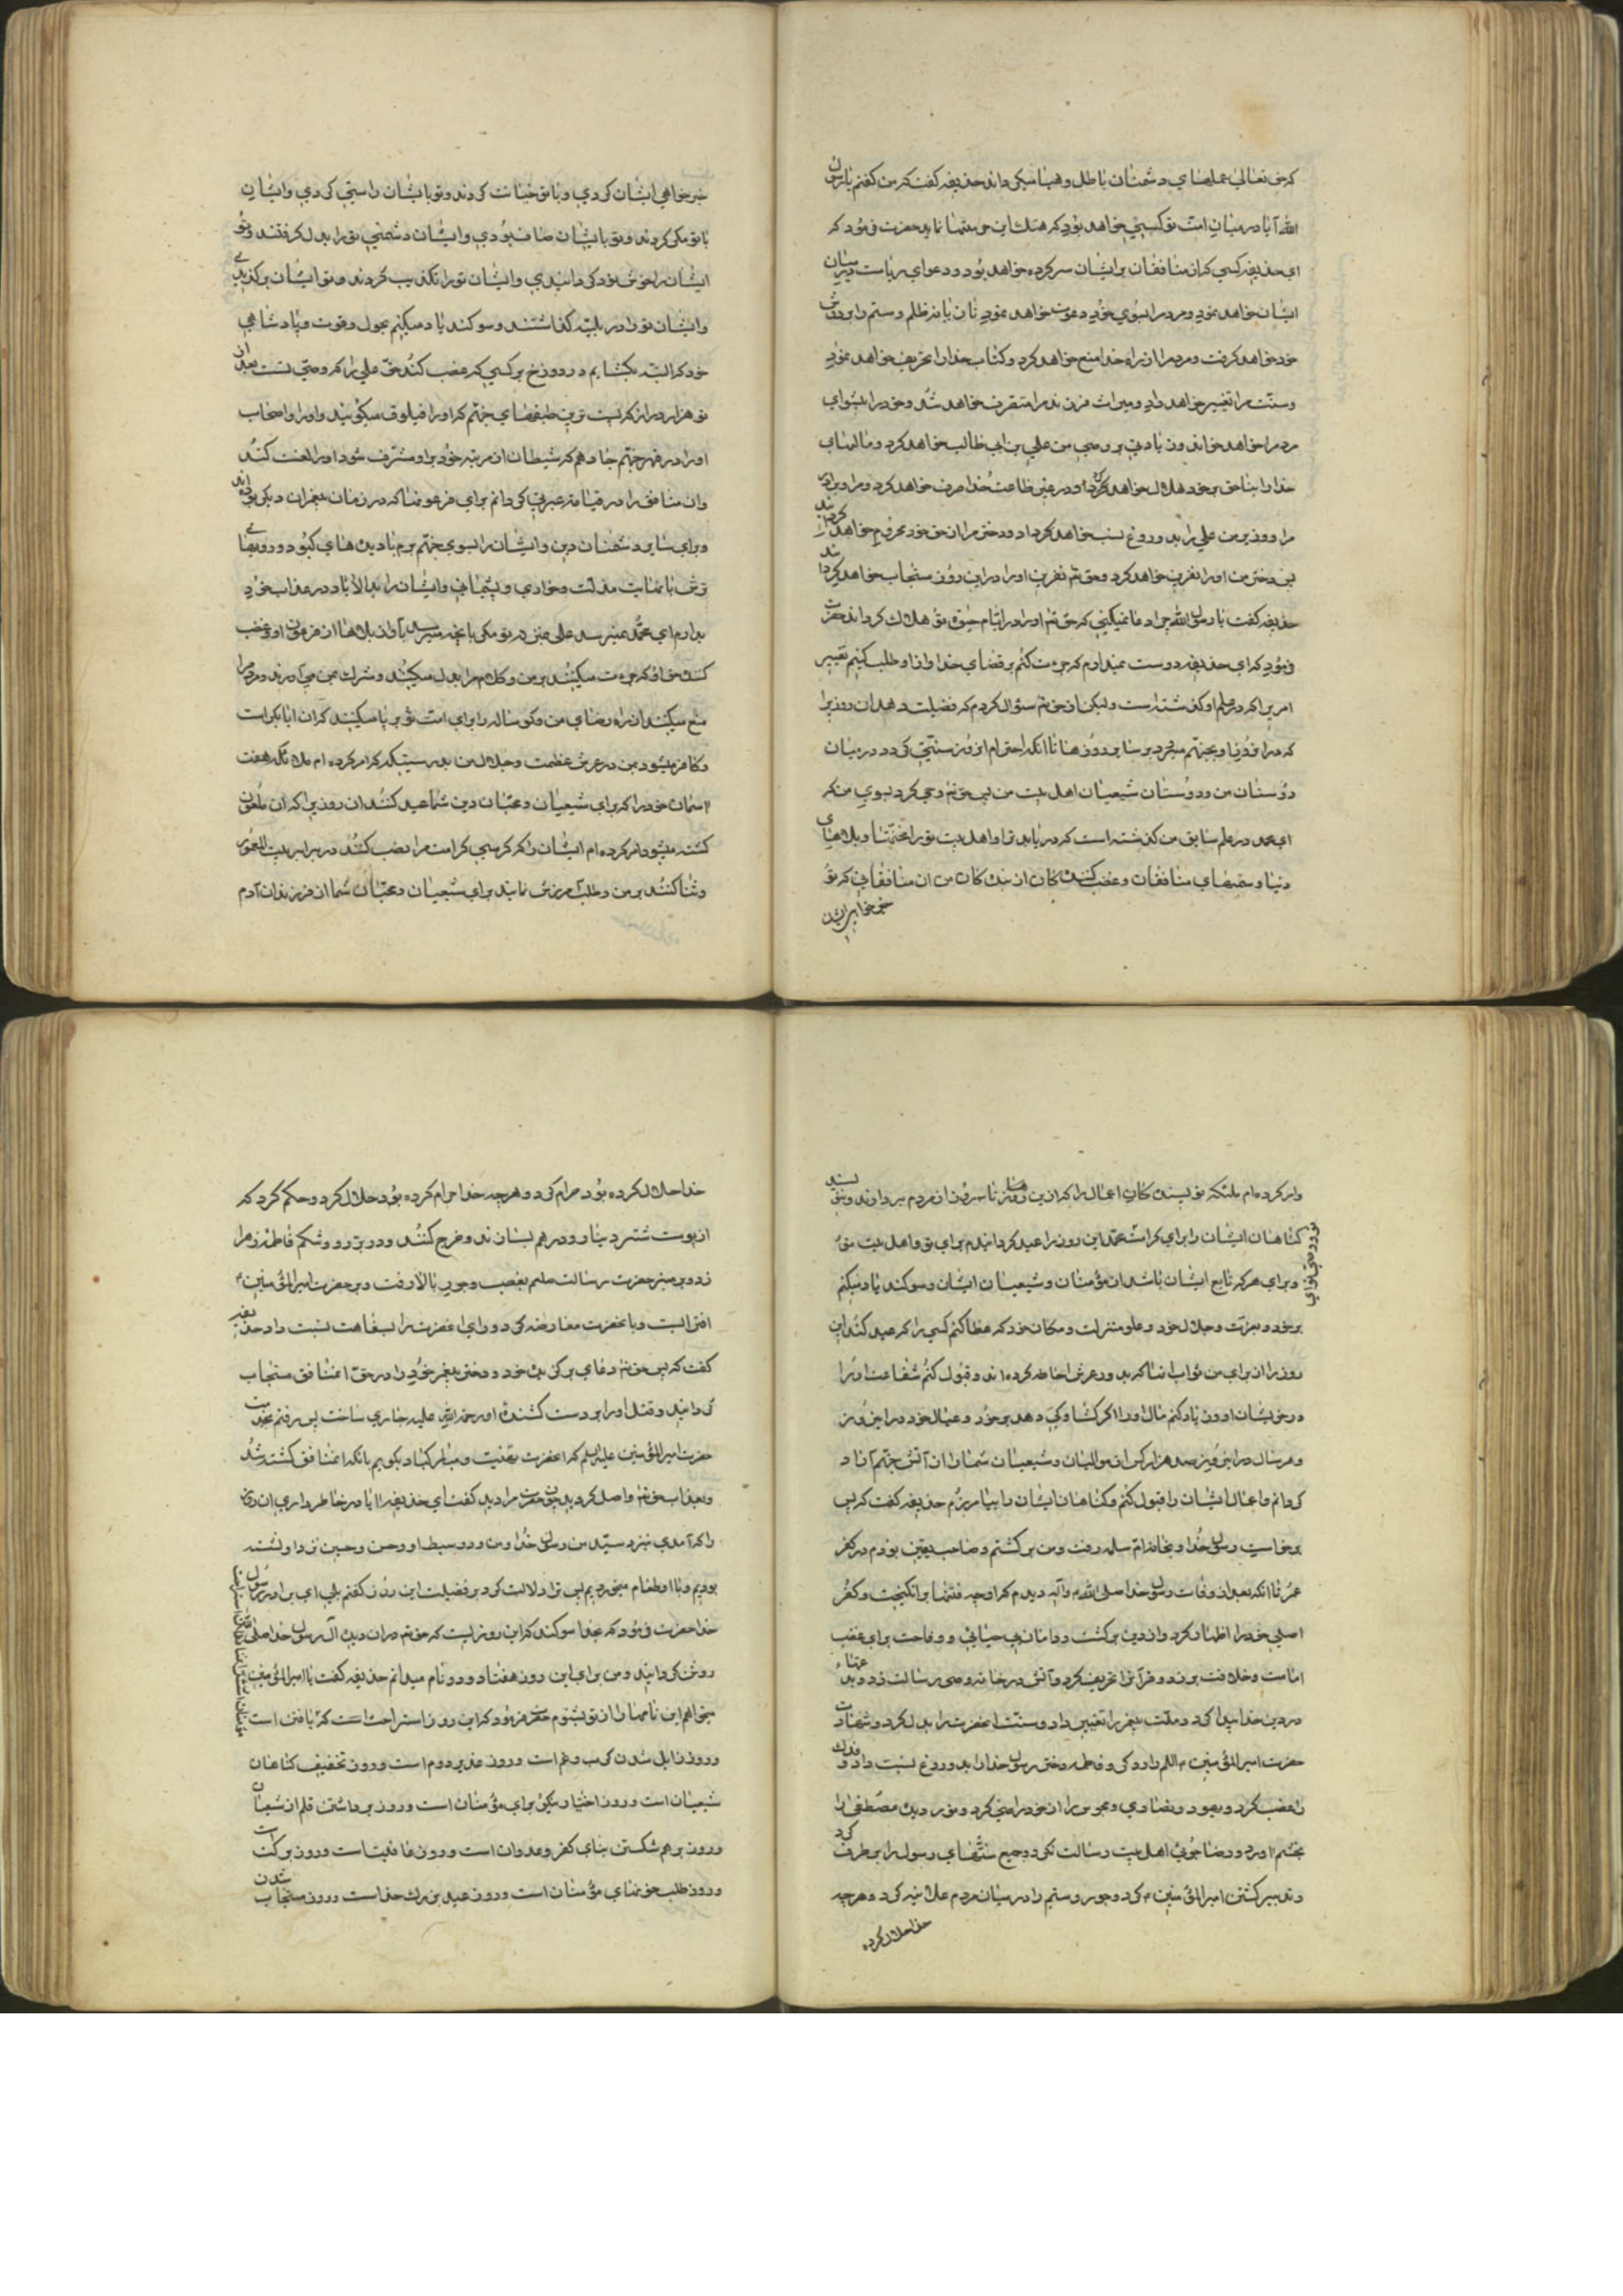 که حق تعالی عملهای دشمنان باطل و هبا میگرداند حذیفه گفت که من گفتم یا رسول
الله آیا در میان امت تو کسی خواهد بود که هتک این حرمتها نماید حضرت فرمود که
ای حذیفه کسی که از منافقان بر ایشان سرکرده خواهد بود و دعوای ریاست در میان
ایشان خواهد نمود و مردم را بسوی خود دعوت خواهد نمود تازیانه ظلم و ستم را بر دوش
خود خواهد گرفت و مردم را از راه خدا منع خواهد کرد و کتاب خدا را تحریف خواهد نمود
و سنت مرا تغییر خواهد داد و میراث فرزند مرا متصرف خواهد شد و خود را پیشوای
مردم خواهد خواند و زیادتی بر وصی من علی بن ابی طالب خواهد کرد و مالهای
خدا را بناحق بر خود حلال خواهد کرد و در غیر طاعت خدا صرف خواهد کرد و مرا و برادر
مرا و وزیر من علی را بدروغ نسبت خواهد داد و دختر مرا از حق خود محروم خواهد گردانید
پس دختر من او را نفرین خواهد کرد و حق تعالی نفرین او را در این روز مستجاب خواهد گردانید
حذیفه گفت یا رسول الله چرا دعا نمیکنی که حق تعالی او را در ایام حیوة تو هلاک گرداند حضرت
فرمود که ای حذیفه دوست نمیدارم که جرءت کنم بر قضای خدا و از او طلب کنم تغییر
امریرا که در علم او گذشته است ولیکن از حق تعالی سؤال کردم که فضیلت دهد آن روزیرا
که در آن روز او بجهنم میرود بر سایر روزها تا آنکه احترام آن روز سنتی گردد در میان
دوستان من و دوستان شیعیان اهل بیت من پس حق تعالی وحی کرد بسوی من که
ای محمد در علم سابق من گذشته است که دریابد ترا و اهل بیت ترا محنتها و بلاهای
دنیا و ستمهای منافقان و غضب کنندگان از بندگان من آن منافقانی که تو
خیرخواهی ایشان
خیرخواهی ایشان کردی و با تو خیانت کردند و تو با ایشان راستی کردی و ایشان
با تو مکر کردند و تو با ایشان صاف بودی و ایشان دشمنی تو را بدل گرفتند و تو
ایشان را خوشنود گردانیدی و ایشان تو را تکذیب کردند و تو ایشان را برگزیدی
و ایشان تو را در بلیه گذاشتند و سوگند یاد میکنم بحول و قوت و پادشاهی
خود که البته بگشایم در دوزخ بر کسی که غصب کند حق علی را که وصی تست بعد از
تو هزار در از پست ترین طبقهای جهنم که او را فیلوق میگویند و او را و اصحاب
او را در قعر جهنم جا دهم که شیطان از مرتبه خود بر او مشرف شود او را لعنت کند
و آن منافق را در قیامت عبرتی گردانم برای فرعونها که در زمان پیغمبران دیگر بوده اند
و برای سایر دشمنان دین و ایشان را بسوی جهنم برم با دیدهای کبود و رویهای
ترش با نهایت مذلت و خواری و پشیمانی و ایشان را ابد الآباد در عذاب خود
بدارم ای محمد نمیرسد علی بمنزلت تو مگر بآنچه میرسد باو از بلاها از فرعون او و غصب
کننده حق او که جرءت میکند بر من و کلام مرا بدل میکند و شرک بمن می آورد و مردم را
منع میکند از راه رضای من و گوساله را برای امت تو بر پا میکند که آن ابابکر است
و کافر میشود بمن در عرش عظمت و جلال من بدرستیکه که امر کرده ام ملائکه هفت
آسمان خود را که برای شیعیان و محبان دین شما عید کنند آن روزیرا که آن ملعون
کشته میشود و امر کرده ام ایشان را که کرسی کرامت مرا نصب کنند در برابر بیت المعمور
و ثنا کنند بر من و طلب آمرزش نمایند برای شیعیان و محبان شما از فرزندان آدم
و امر کرده ام ملئکه نویسندگان اعمال را که از این روز تا سه روز قلم از مردم بردارند و ننویسند
گناهان ایشان را برای کرامت محمد این روز را عید گردانیدم برای تو و اهل بیت تو
و برای هر که تابع ایشان باشد از مؤمنان و شیعیان ایشان و سوگند یاد میکنم
بر خود و بعزت و جلال خود و علو منزلت و مکان خود که عطا کنم کسی را که عید کند این
روز را از برای من ثواب آنها که بدور عرش احاطه کرده اند و قبول کنم شفاعت او را
در خویشان او و زیاد کنم مال او را اگر گشادگی دهد بر خود و عیال خود در این روز
و هر سال در این روز صد هزار کس از موالیان و شیعیان شما را از آتش جهنم آزاد
گردانم و اعمال ایشان را قبول کنم و گناهان ایشان را بیامرزم حذیفه گفت که پس
برخاست رسول خدا و بخانه ام سلمه رفت و من برگشتم و صاحب یقین بودم در کفر
عمر تا آنکه بعد از وفات رسول خدا صلی الله علیه و آله دیدم که او چه فتنها برانگیخت و کفر
اصلی خود را اظهار کرد و از دین برگشت و دامان بی حیائی و وقاحت برای غصب
امامت و خلافت بر زد و قرآن را تحریف کرد و آتش در خانه وحی و رسالت زد و بدعتها
در دین خدا پیدا کرد و ملت پیغمبر را تغییر داد و سنت آنحضرت را بدل کرد و شهادت
حضرت امیر المؤمنین علیه السلام را رد کرد و فاطمه دختر رسول خدا را بدروغ نسبت داد و فدک
را غصب کرد و یهود و نصاری و مجوس را از خود راضی کرد و نور دیده مصطفی را
بخشم آورد و رضاجوئی اهل بیت رسالت نکرد و جمیع سنتهای رسول را برطرف کرد
و تدبیر کشتن امیر المؤمنین کرد و جور و ستم را در میان مردم علانیه کرد و هر چه
خدا حلال کرده
خدا حلال کرده بود حرام کرد و هر چه خدا حرام کرده بود حلال کرد و حکم کرد که
از پوست شتر دینار و درهم بسازند و خرج کنند و در بر رو و شکم فاطمه زهرا
زد و بر منبر حضرت رسالت صلعم بغصب و جور بالا رفت و بر حضرت امیر المؤمنین
افترا بست و با آنحضرت معارضه کرد و رأی آنحضرت را بسفاهت نسبت داد حذیفه
گفت که پس حق تعالی دعای برگزیده خود و دختر پیغمبر خود را در حق آن منافق مستجاب
گردانید و قتل او را بر دست کشنده او رحمة الله علیه جاری ساخت پس رفتم بخدمت
حضرت امیر المؤمنین علیه السلم که آنحضرت را تهنیت و مبارکباد بگویم بآنکه آن منافق کشته شد
و بعذاب حق تعالی واصل گردید چون حضرت مرا دید گفت ای حذیفه آیا در خاطر داری آن روزی
را که آمدی بنزد سید من رسول خدا و من و دو سبط او حسن و حسین نزد او نشسته
بودیم و با او طعام میخوردیم پس ترا دلالت کرد بر فضیلت این روز گفتم بلی ای برادر رسول
خدا حضرت فرمود که بخدا سوگند که این روزیست که حق تعالی در آن دیده آل رسول خدا صلی الله
روشن گردانید و من برای این روز هفتاد و دو نام میدانم حذیفه گفت یا امیر المؤمنین
میخواهم این نامها را از تو بشنوم حضرت فرمود که این روز استراحت است که مؤمنان
و روز زایل شدن کرب و غم است و روز غدیر دوم است و روز تخفیف گناهان
شیعیان است و روز اختیار نیکوئی برای مؤمنان است و روز برداشتن قلم از شیعیان
و روز برهم شکستن بنای کفر و عدوان است و روز عافیت است و روز برکت است
و روز طلب خونهای مؤمنان است و روز عید بزرگ خداست و روز مستجاب شدن